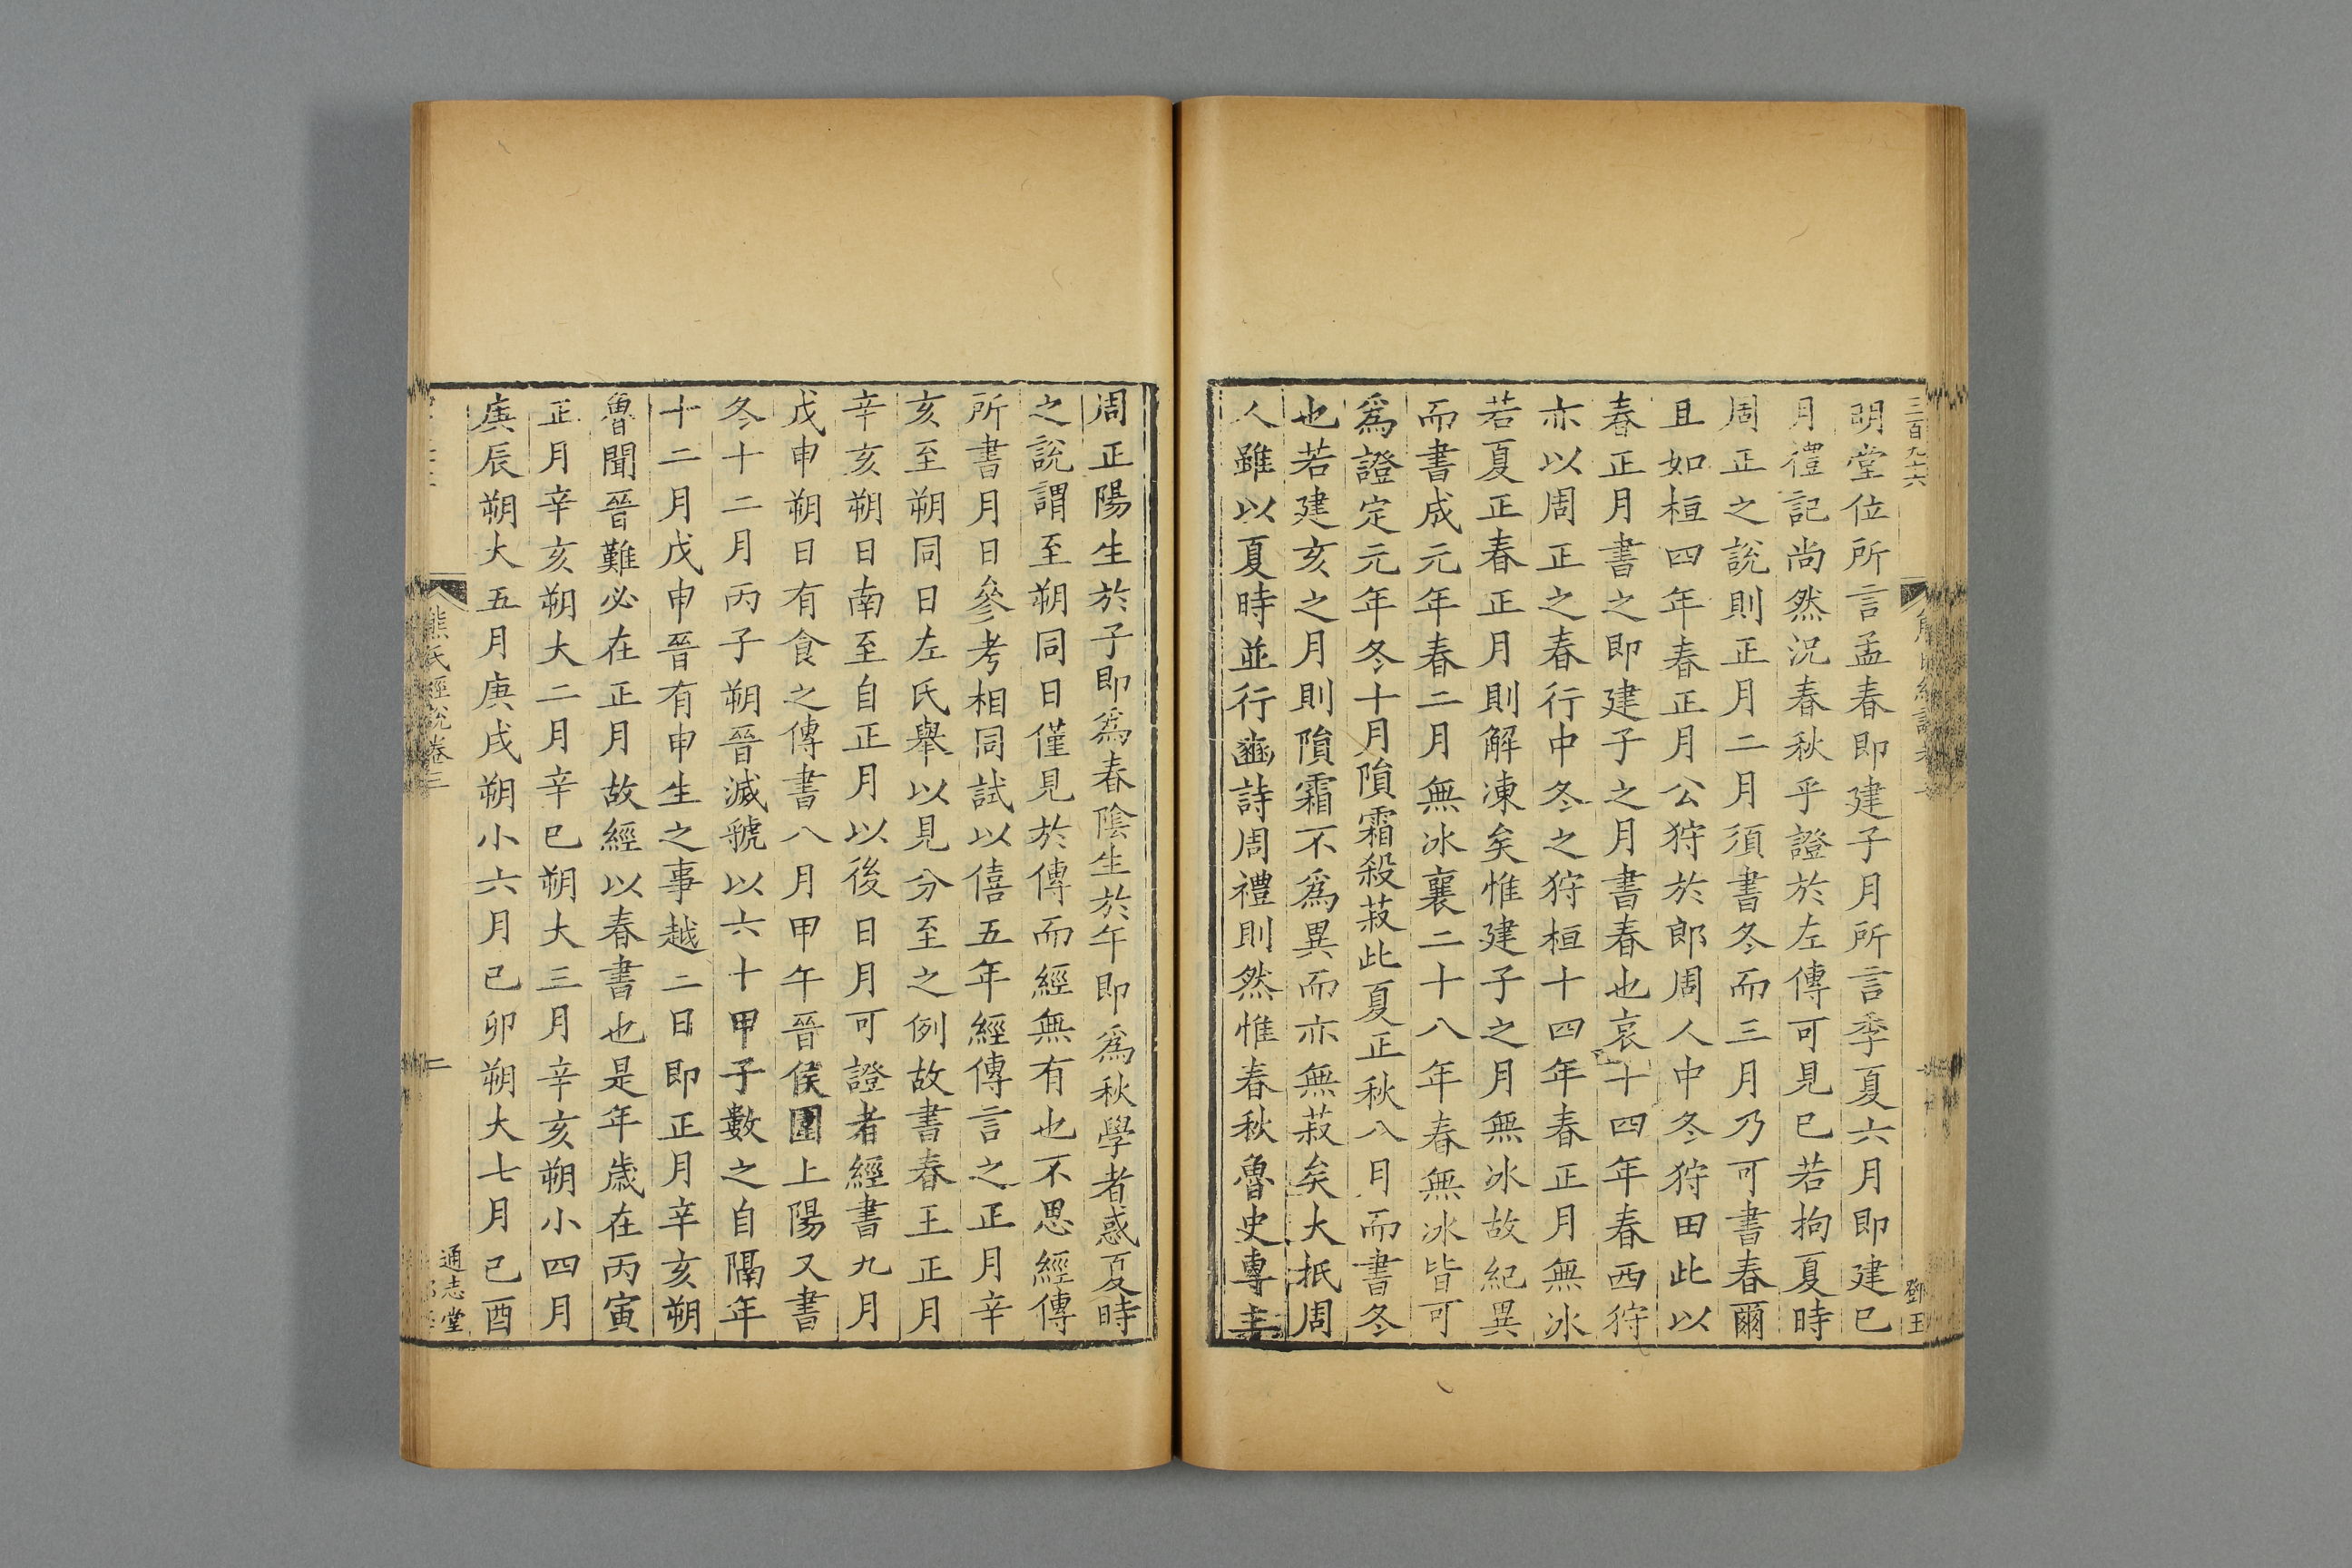 三百九十六
鄧玉
明堂位所言孟春即建子月所言季夏六月即建巳
月禮記尚然況春秋乎證於左傳可見巳若拘夏時
周正之說則正月二月須書冬而三月乃可書春爾
且如桓四年春正月公狩於郎周人中冬狩田此以
春正月書之即建子之月書春也哀十四年春西狩
亦以周正之春行中冬之狩桓十四年春正月無冰
若夏正春正月則解凍矣惟建子之月無冰故紀異
而書成元年春二月無冰襄二十八年春無冰皆可
爲證定元年冬十月隕霜殺菽此夏正秋八月而書冬
也若建亥之月則隕霜不爲異而亦無菽矣大抵周
人雖以夏時並行豳詩周禮則然惟春秋魯史專主
周正陽生於子即爲春陰生於午即爲秋學者惑夏時
之說謂至朔同日僅見於傳而經無有也不思經傳
所書月日參考相同試以僖五年經傳言之正月辛
亥至朔同日左氏舉以見分至之例故書春王正月
辛亥朔日南至自正月以後日月可證者經書九月
戊申朔日有食之傳書八月甲午晉侯圍上陽又書
冬十二月丙子朔晉滅虢以六十甲子數之自隔年
十二月戊申晉有申生之事越二日即正月辛亥朔
魯聞晉難必在正月故經以春書也是年歲在丙寅
正月辛亥朔大二月辛巳朔大三月辛亥朔小四月
庚辰朔大五月庚戌朔小六月己卯朔大七月己酉
熊氏經說卷三
二
通志堂